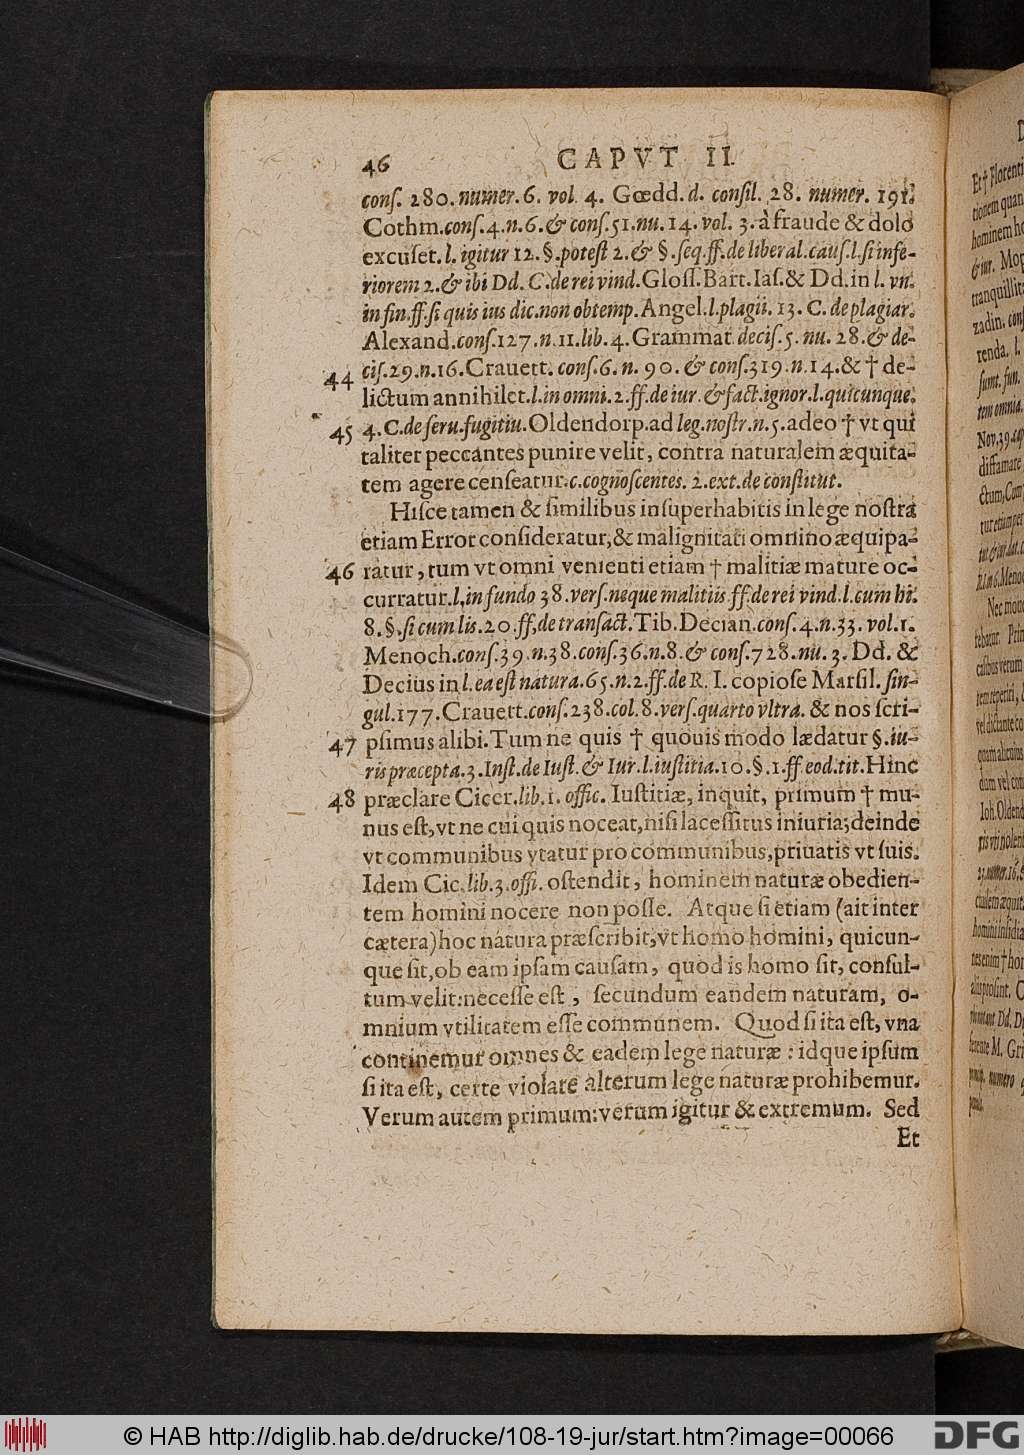 46 CAPVT II.
conſ. 280. numer. 6. vol. 4. Gœdd. d. conſil. 28. numer. 191.
Cothm. conſ. 4. n. 6. & conſ. 51. nu. 14. vol. 3. à fraude & dolo
excuſet. l. igitur 12. §. poteſt 2. & §. ſeq. ff. de liberal. cauſ. l. ſi infe-
riorem 2. & ibi Dd. C. de rei vind. Gloſſ. Bart. Iaſ. & Dd. in l. vn.
in fin. ff. ſi quis ius dic. non obtemp. Angel. l. plagii. 13. C. de plagiar.
Alexand. conſ. 127. n. 11. lib. 4. Grammat. deciſ. 5. nu. 28. & de-
ciſ. 29. n. 16. Crauett. conſ. 6. n. 90. & conſ. 319. n. 14. & † de-
44 lictum annihilet. l. in omni. 2. ff. de iur. & fact. ignor. l. quicunque.
45 4. C. de ſeru. fugitiu. Oldendorp. ad leg. noſtr. n. 5. adeo † vt qui
taliter peccantes punire velit, contra naturalem æquita-
tem agere cenſeatur. c. cognoſcentes. 2. ext. de conſtitut.
Hiſce tamen & ſimilibus inſuperhabitis in lege noſtra
etiam Error conſideratur, & malignitati omnino æquipa-
46 ratur, tum vt omni venienti etiam † malitiæ mature oc-
curratur. l. in fundo 38. verſ. neque malitiis ff. de rei vind. l. cum hi.
8. §. ſi cum lis. 20. ff. de tranſact. Tib. Decian. conſ. 4. n. 33. vol. 1.
Menoch. conſ. 39. n. 38. conſ. 36. n. 8. & conſ. 728. nu. 3. Dd. &
Decius in l. ea eſt natura. 65. n. 2. ff. de R. I. copioſe Marſil. ſin-
gul. 177. Crauett. conſ. 238. col. 8. verſ. quarto vltra. & nos ſcri-
47 pſimus alibi. Tum ne quis † quouis modo lædatur §. iu-
ris præcepta. 3. Inſt. de Iuſt. & Iur. l. iuſtitia. 10. §. 1. ff. eod. tit. Hinc
48 præclare Cicer. lib. 1. offic. Iuſtitiæ, inquit, primum † mu-
nus eſt, vt ne cui quis noceat, niſi laceſſitus iniuria; deinde
vt communibus vtatur pro communibus, priuatis vt ſuis.
Idem Cic. lib. 3. offi. oſtendit, hominem naturæ obedien-
tem homini nocere non poſſe. Atque ſi etiam (ait inter
cætera) hoc natura præſcribit, vt homo homini, quicun-
que ſit, ob eam ipſam cauſam, quod is homo ſit, conſul-
tum velit: neceſſe eſt, ſecundum eandem naturam, o-
mnium vtilitatem eſſe communem. Quod ſi ita eſt, vna
continemur omnes & eadem lege naturæ: idque ipſum
ſi ita eſt, certe violare alterum lege naturæ prohibemur.
Verum autem primum: verum igitur & extremum. Sed
Et
© HAB http://diglib.hab.de/drucke/108-19-jur/start.htm?image=00066
DFG